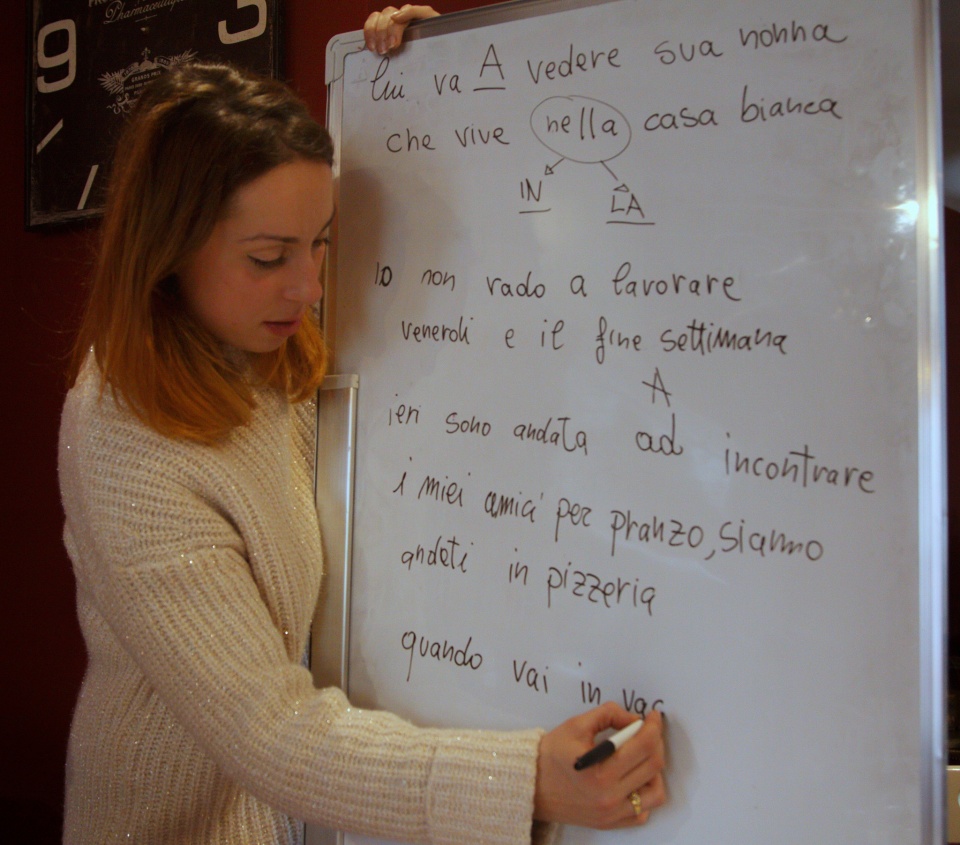 9 3
Pharmaceutique
GRANDS PRIX
lui va A vedere sua nonna
che vive nella casa bianca
IN LA
IO non vado a lavorare
venerdi e il fine settimana
A
ieri sono andata ad incontrare
i miei amici per pranzo, siamo
andati in pizzeria
quando vai in vac